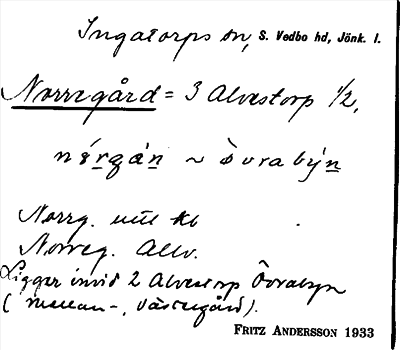 Ingatorps sn, S. Vedbo hd, Jönk. l.
Norregård = 3 Alvestorp 1/2,
nórgán ~ òvrabýn
Norrg. utt kb
Norreg. Allv.
Ligger invid 2 Alvestorp Övrabyn
(mellan-, Västregård).
FRITZ ANDERSSON 1933